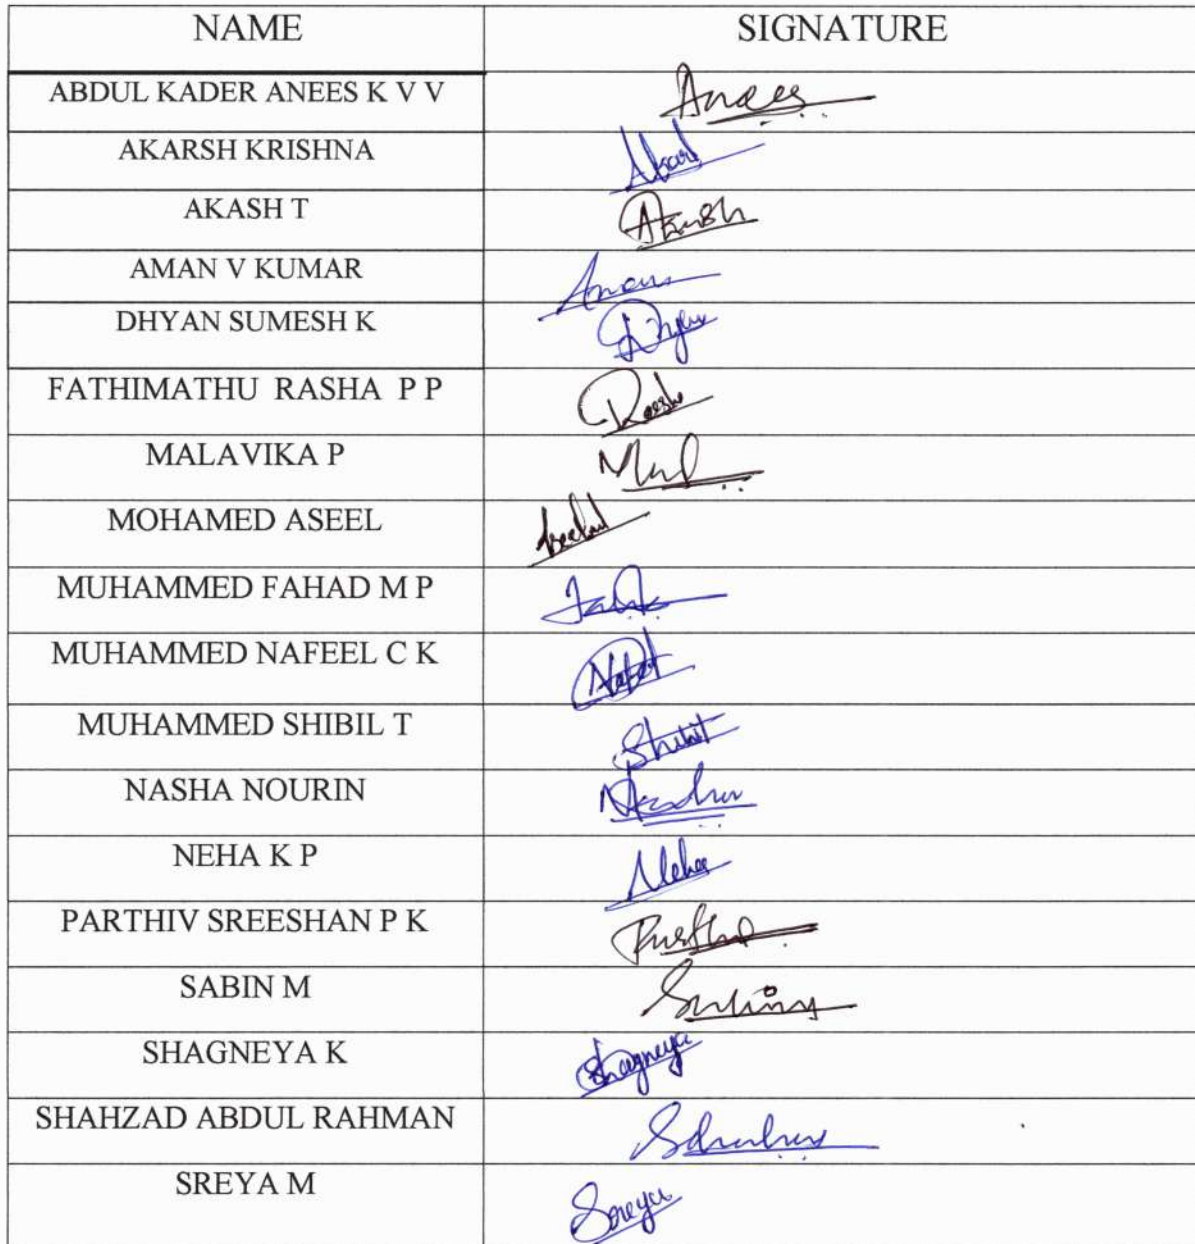 NAME SIGNATURE
ABDUL KADER ANEES K V V Anees
AKARSH KRISHNA
AKASH T Akash
AMAN V KUMAR Aman
DHYAN SUMESH K Dhyan
FATHIMATHU RASHA P P Rasha
MALAVIKA P
MOHAMED ASEEL
MUHAMMED FAHAD M P
MUHAMMED NAFEEL C K
MUHAMMED SHIBIL T Shibil
NASHA NOURIN
NEHA K P Neha
PARTHIV SREESHAN P K
SABIN M
SHAGNEYA K Shagneya
SHAHZAD ABDUL RAHMAN
SREYA M Sreya